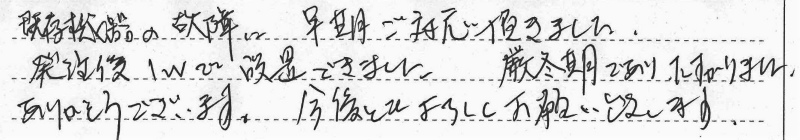 既存機器の故障に 早期ご対応頂きました.
発注後1Wで設置できました. 厳冬期でありたすかりました.
ありがとうございます。 今後ともよろしくお願い致します.